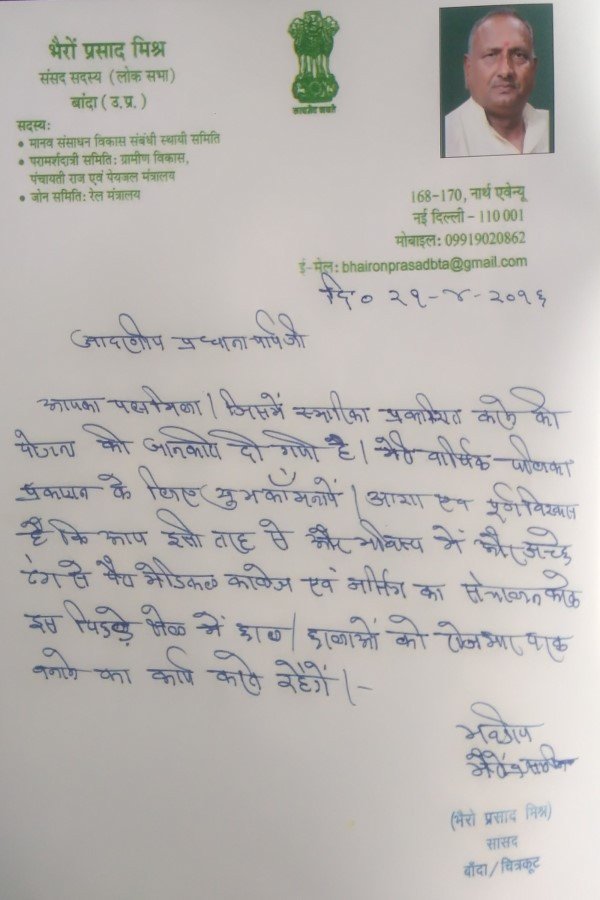 भैरों प्रसाद मिश्र
संसद सदस्य (लोक सभा)
बांदा (उ.प्र.)
सदस्य:
• मानव संसाधन विकास संबंधी स्थायी समिति
• परामर्शदात्री समिति: ग्रामीण विकास,
पंचायती राज एवं पेयजल मंत्रालय
• जोन समिति: रेल मंत्रालय
सत्यमेव जयते
168-170, नार्थ एवेन्यू
नई दिल्ली - 110 001
मोबाइल: 09919020862
ई-मेल: bhaironprasadbta@gmail.com
दि० २१-४-२०१६
आदरणीय प्रधानाचार्य जी
आपका पत्र मिला। जिसमें स्मारिका प्रकाशित करने की
योजना की जानकारी दी गयी है। मेरी वार्षिक पत्रिका
प्रकाशन के लिए शुभकामनायें। आशा एवं पूर्ण विश्वास
है कि आप इसी तरह से और भविष्य में और अच्छे
ढंग से पैरा मेडिकल कालेज एवं नर्सिंग का संचालन करके
इस पिछड़े क्षेत्र में छात्र/छात्राओं को रोजगार परक
बनाने का कार्य करते रहेंगें।-
भवदीय
(भैरों प्रसाद मिश्र)
सांसद
बाँदा/चित्रकूट